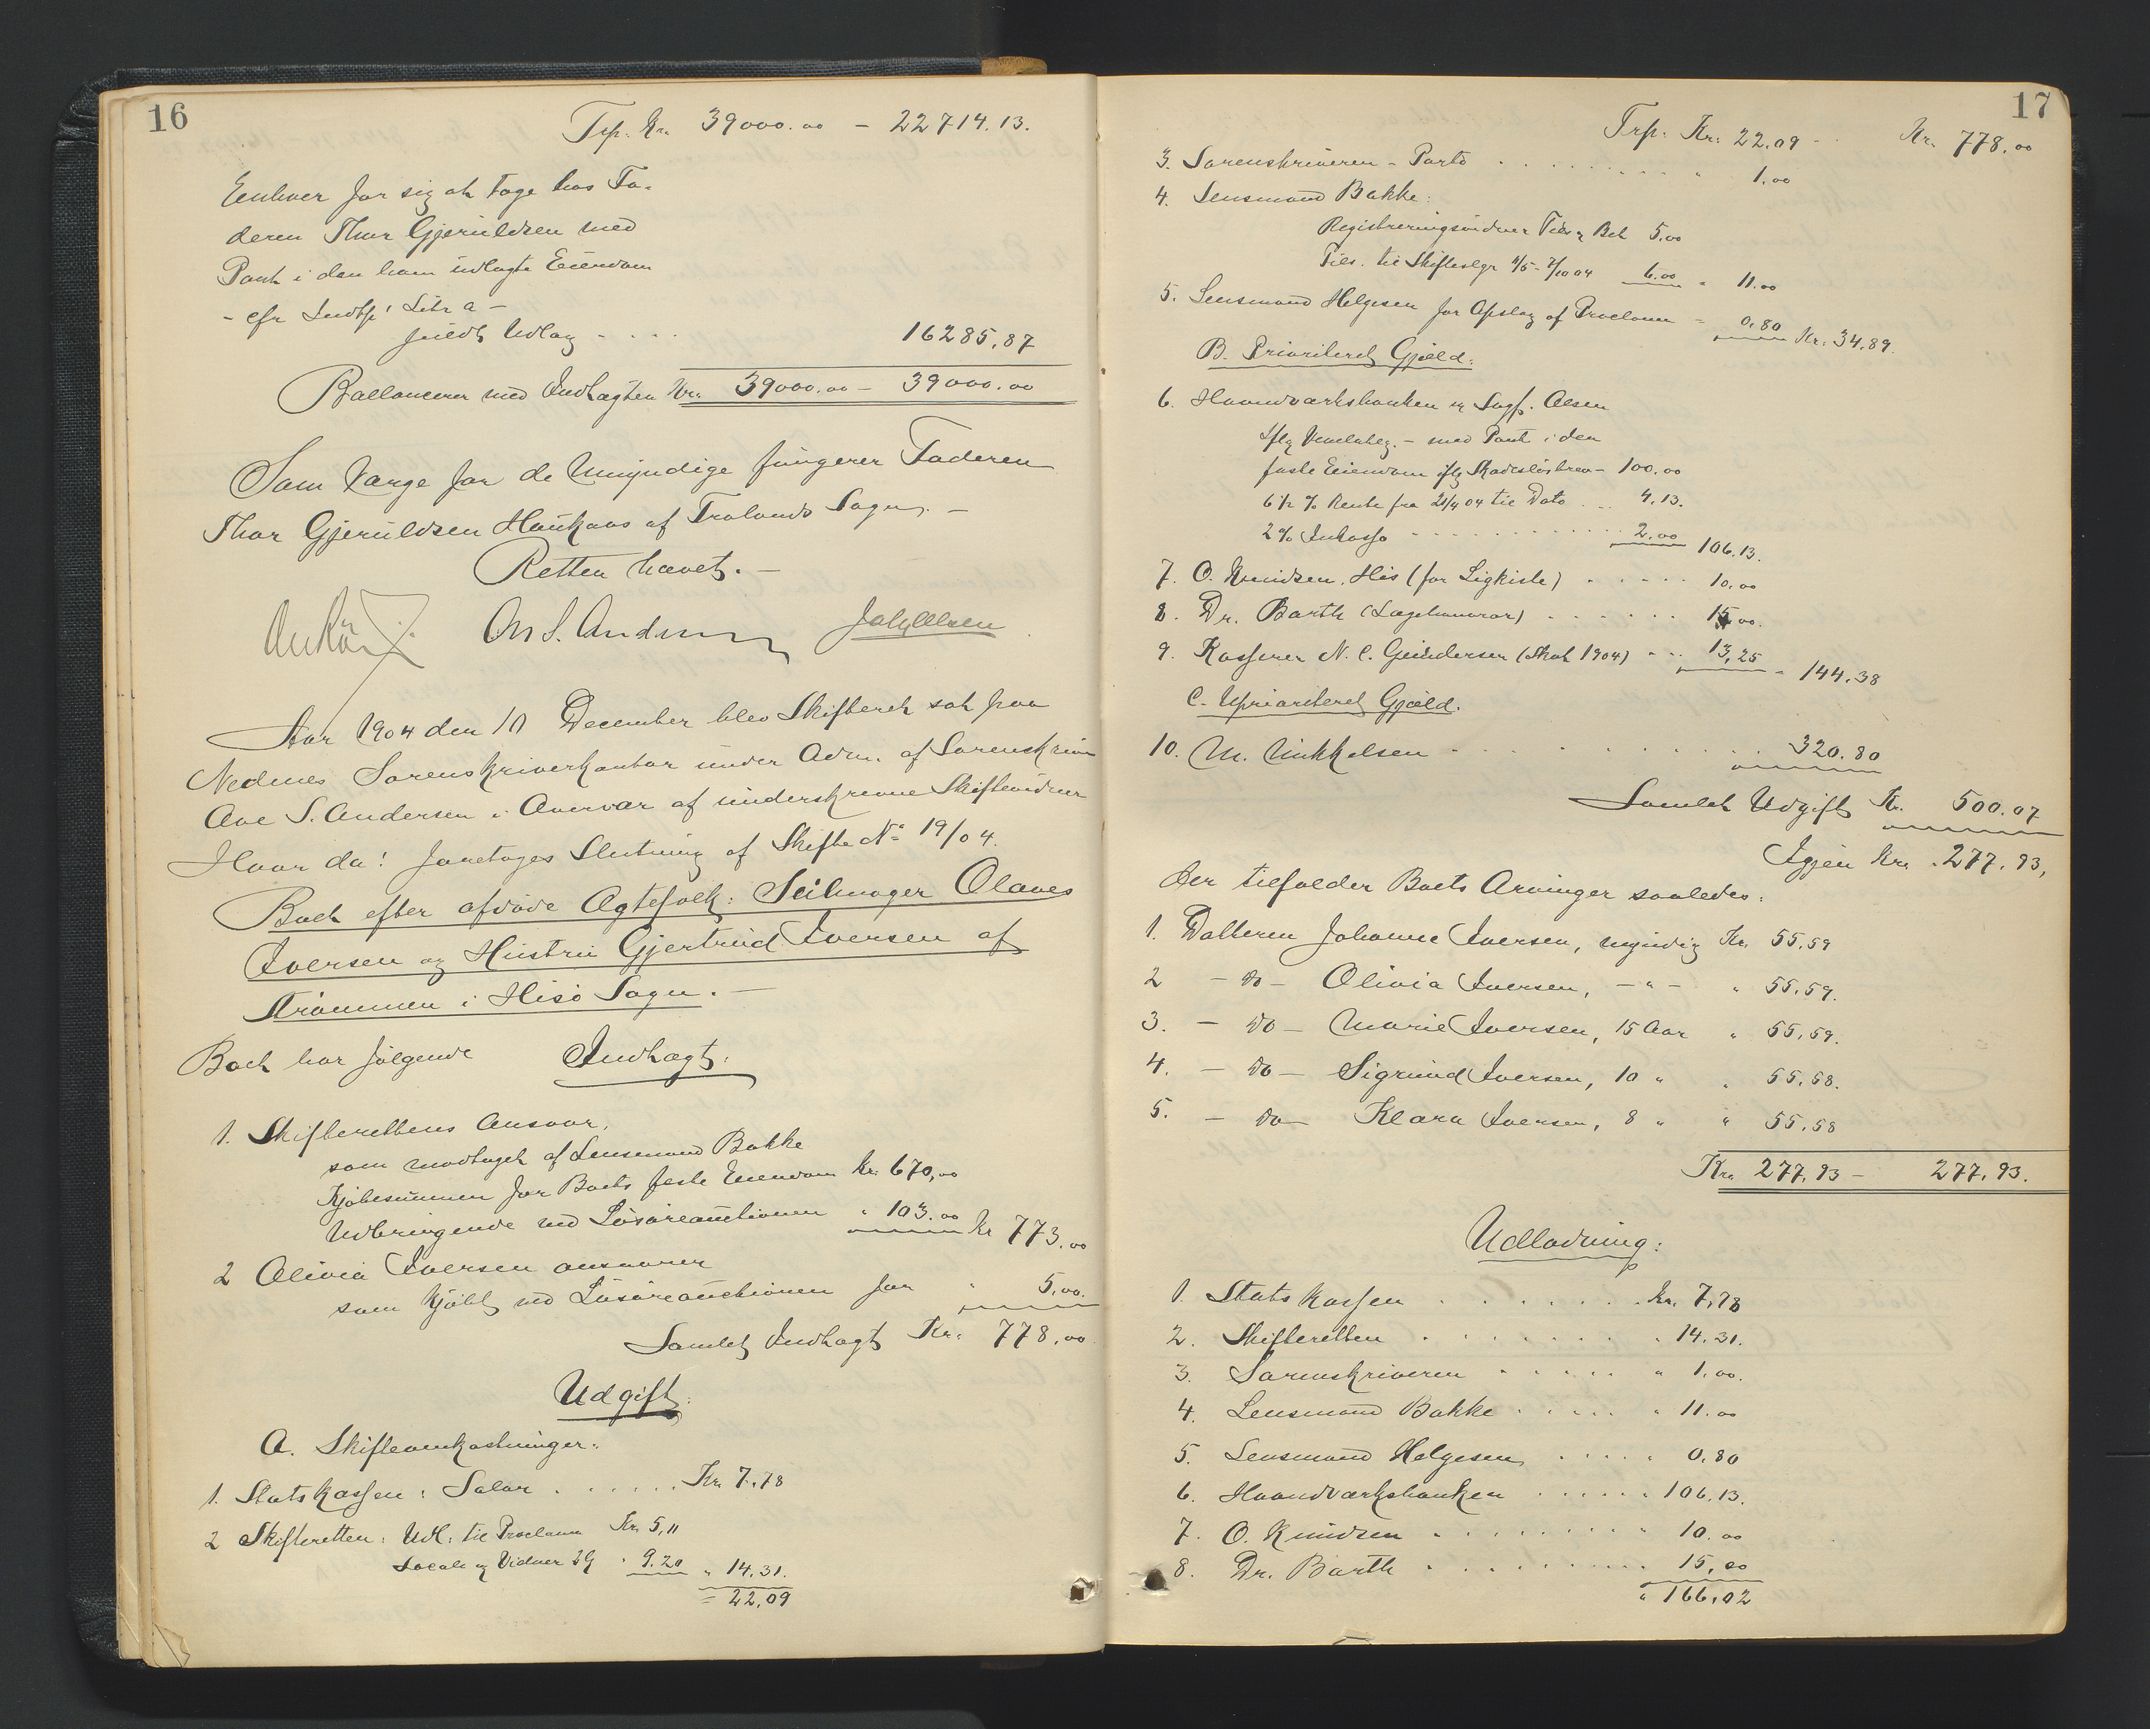 16
Trp. Kr. 39000.00 – 22714.13.
Enhver for sig at tage hos Fa-
deren Thor Gjeruldsen med
Pant i den ham udlagte Eiendom
– cfr Indtp. Litr a –
fuldt Udlæg . . . . 16285,87
Ballancerer med Indtægten Kr. 39000.00 – 39000.00
Som Værge for de Umyndige fungerer Faderen
Thor Gjeruldsen Haukaas af Trolands Sogn. –
Retten hævet. –
Ove S. Andersen
Aar 1904 den 10 December blev Skifteret sat paa
Nedenes Sorenskriverkontor under Adm. af Sorenskriver
Ove S. Andersen i Overvær af underskrevne Skiftevidner
Hvor da: foretoges Slutning af Skifte No 19/04.
Boet efter afdøde Ægtefolk: Seilmager Olaves
Iversen og Hustru Gjertrud Iversen af
Strømmen i Hisø Sogn. –
Boet har følgende Indtægt:
1. Skifterettens Ansvar,
som modtaget af Lensmand Bakke
Kjøbesummen for Boets faste Eiendom Kr. 670,00
Udbringende ved Løsøreauctionen " 103.00 Kr 773.00
2 Olivia Iversen ansvarer
som kjøbt ved Løsøreauctionen for " 5.00.
Samlet Indtægt Kr. 778.00
Udgift:
A. Skifteomkostninger:
1. Statskassen: Salær . . . . . . Kr. 7.78
2 Skifteretten: Udl: til Proclama Kr. 5,11
Locale og Vidner 2 G " 9.20 " 14.31.
= 22,09
17
Trp. Kr. 22.09 – Kr. 778.00
3. Sorenskriveren – Porto . . . . . . . . " 1.00
4. Lensmand Bakke:
Registreringsvidner Tils og Bek 5.00
Tils. til Skifteslgr 11/5 – 7/10 04 6.00 " 11.00
5. Lensmand Helgesen for Opslag af Proclama – 0.80 Kr. 34.89.
B. Prioriteret Gjæld:
6. Haandværksbanken v Sagf. Olsen
iflg Vexeloblg. – med Pant i den
faste Eiendom iflg Skadesløsbrev – 100.00
6 1/2 % Rente fra 21/4 04 til Dato . . . 4.13.
2 % Inkasso . . . . . . . . . . . . 2.00 106.13.
7. O. Knudsen, His (for Ligkiste) . . . . . 10.00
8. Dr. Barth (Lægehonorar) . . . . . . 15.00.
9. Kasserer N. C. Gundersen (Skat 1904) . . . 13,25 " 144.38
C. Uprioriteret Gjæld.
10. M. Mikkelsen . . . . . . . . . . . . 320.80
Samlet Udgift Kr. 500.07
Igjen Kr. 277.93,
der tilfalder Boets Arvinger saaledes:
1. Datteren Johanne Iversen, myndig Kr. 55,59
2 – do – Olivia Iversen, – " – " 55,59.
3. – do – Marie Iversen, 15 Aar " 55,59.
4. – do – Sigrund Iversen, 10 " " 55,58.
5. – do – Klara Iversen, 8 " " 55,58
Kr. 277.93 – 277.93.
Udlodning:
1. Statskassen . . . . . . . Kr. 7,78
2. Skifteretten . . . . . . . " 14.31.
3. Sorenskriveren . . . . . " 1.00.
4. Lensmand Bakke . . . . . " 11.00
5. Lensmand Helgesen, . . . . " 0.80
6. Haandværksbanken . . . . . . 106.13.
7. O. Knudsen . . . . . . . . " 10.00
8. Dr. Barth . . . . . . . . . 15,00
" 166,02